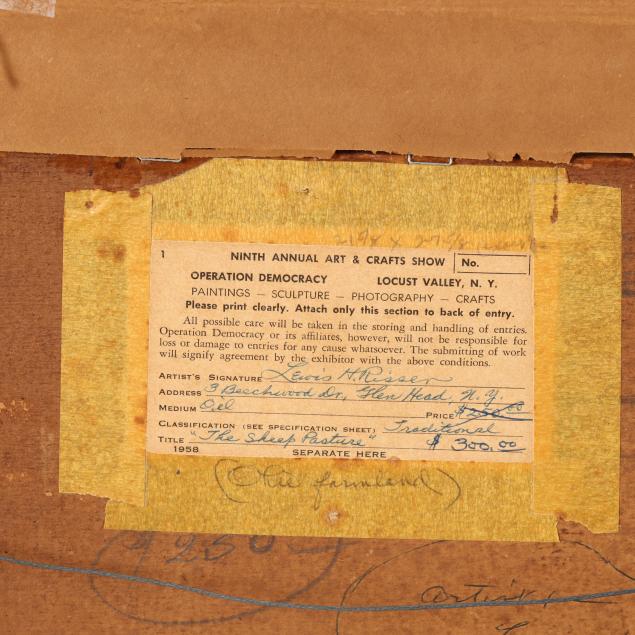 1 NINTH ANNUAL ART & CRAFTS SHOW No.
OPERATION DEMOCRACY LOCUST VALLEY, N. Y.
PAINTINGS — SCULPTURE — PHOTOGRAPHY — CRAFTS
Please print clearly. Attach only this section to back of entry.
All possible care will be taken in the storing and handling of entries.
Operation Democracy or its affiliates, however, will not be responsible for
loss or damage to entries for any cause whatsoever. The submitting of work
will signify agreement by the exhibitor with the above conditions.
ARTIST'S SIGNATURE Lewis H. Risser
ADDRESS 3 Beechwood Dr, Glen Head, N. Y.
MEDIUM Oil PRICE $250.00
CLASSIFICATION (SEE SPECIFICATION SHEET) Traditional
TITLE "The Sheep Pasture" $ 300.00
1958 SEPARATE HERE
(Ohio farmland)